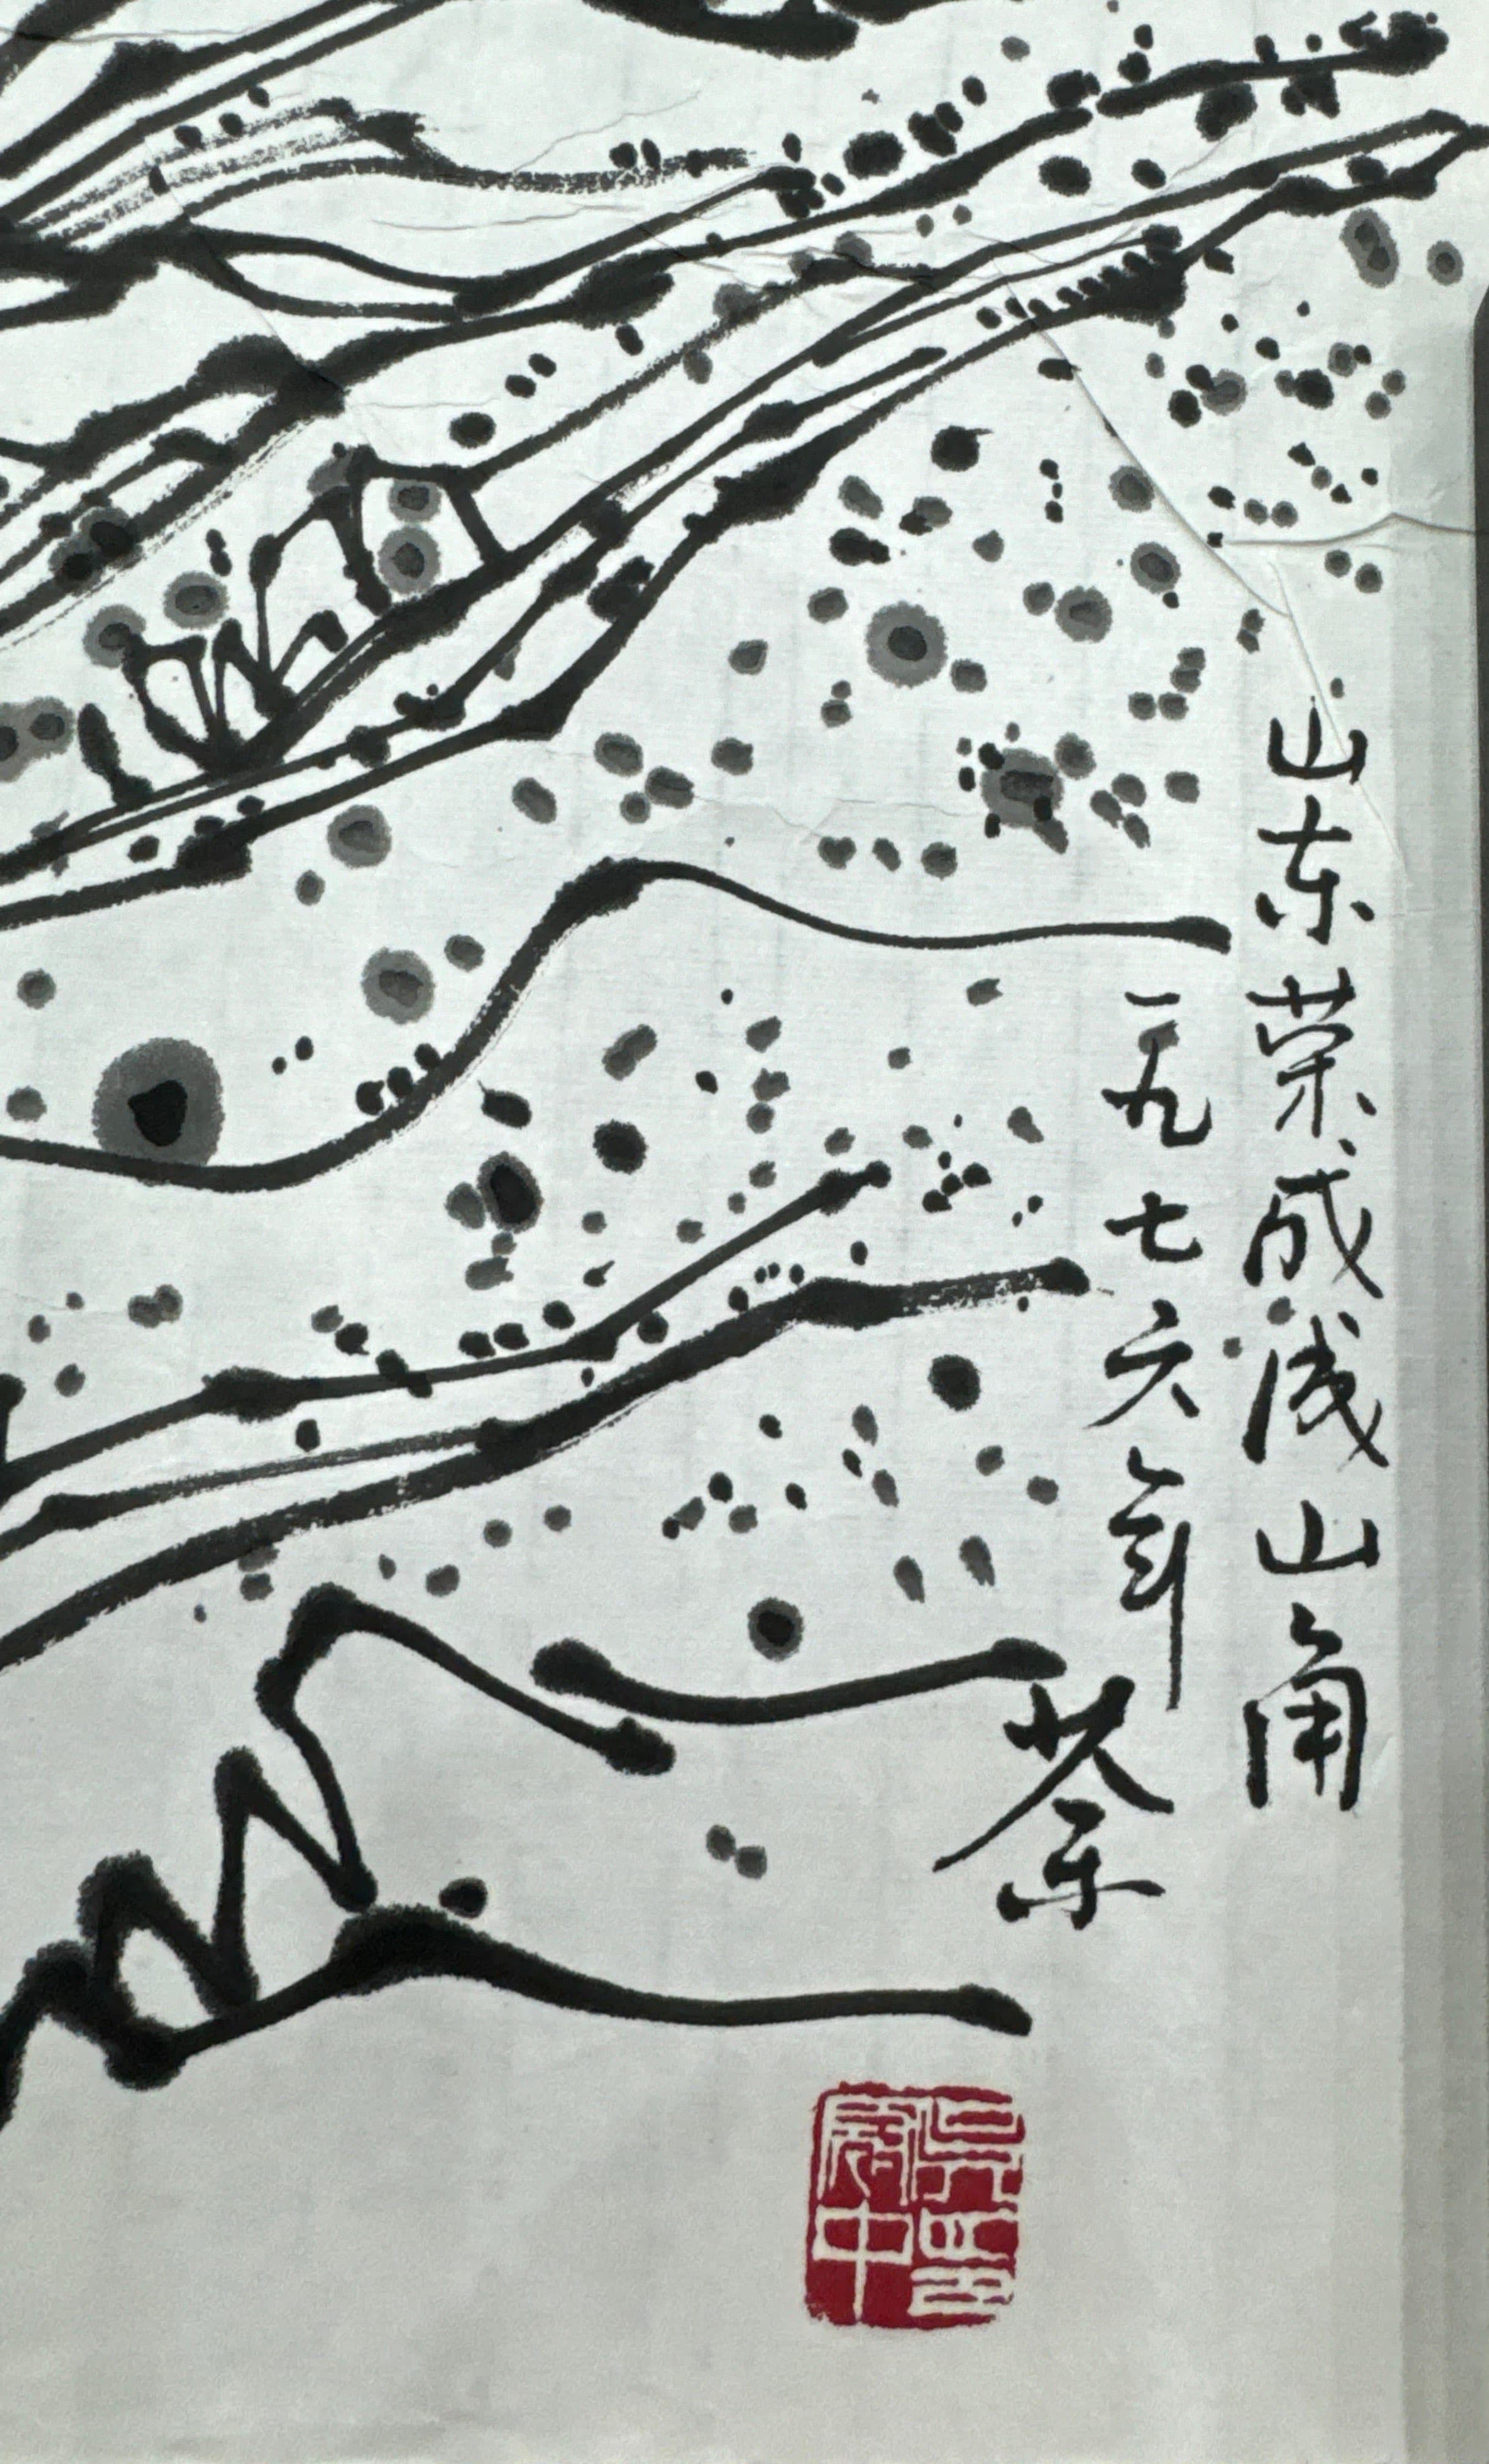 山东荣成成山角
一九七六年
荼
吴冠中印